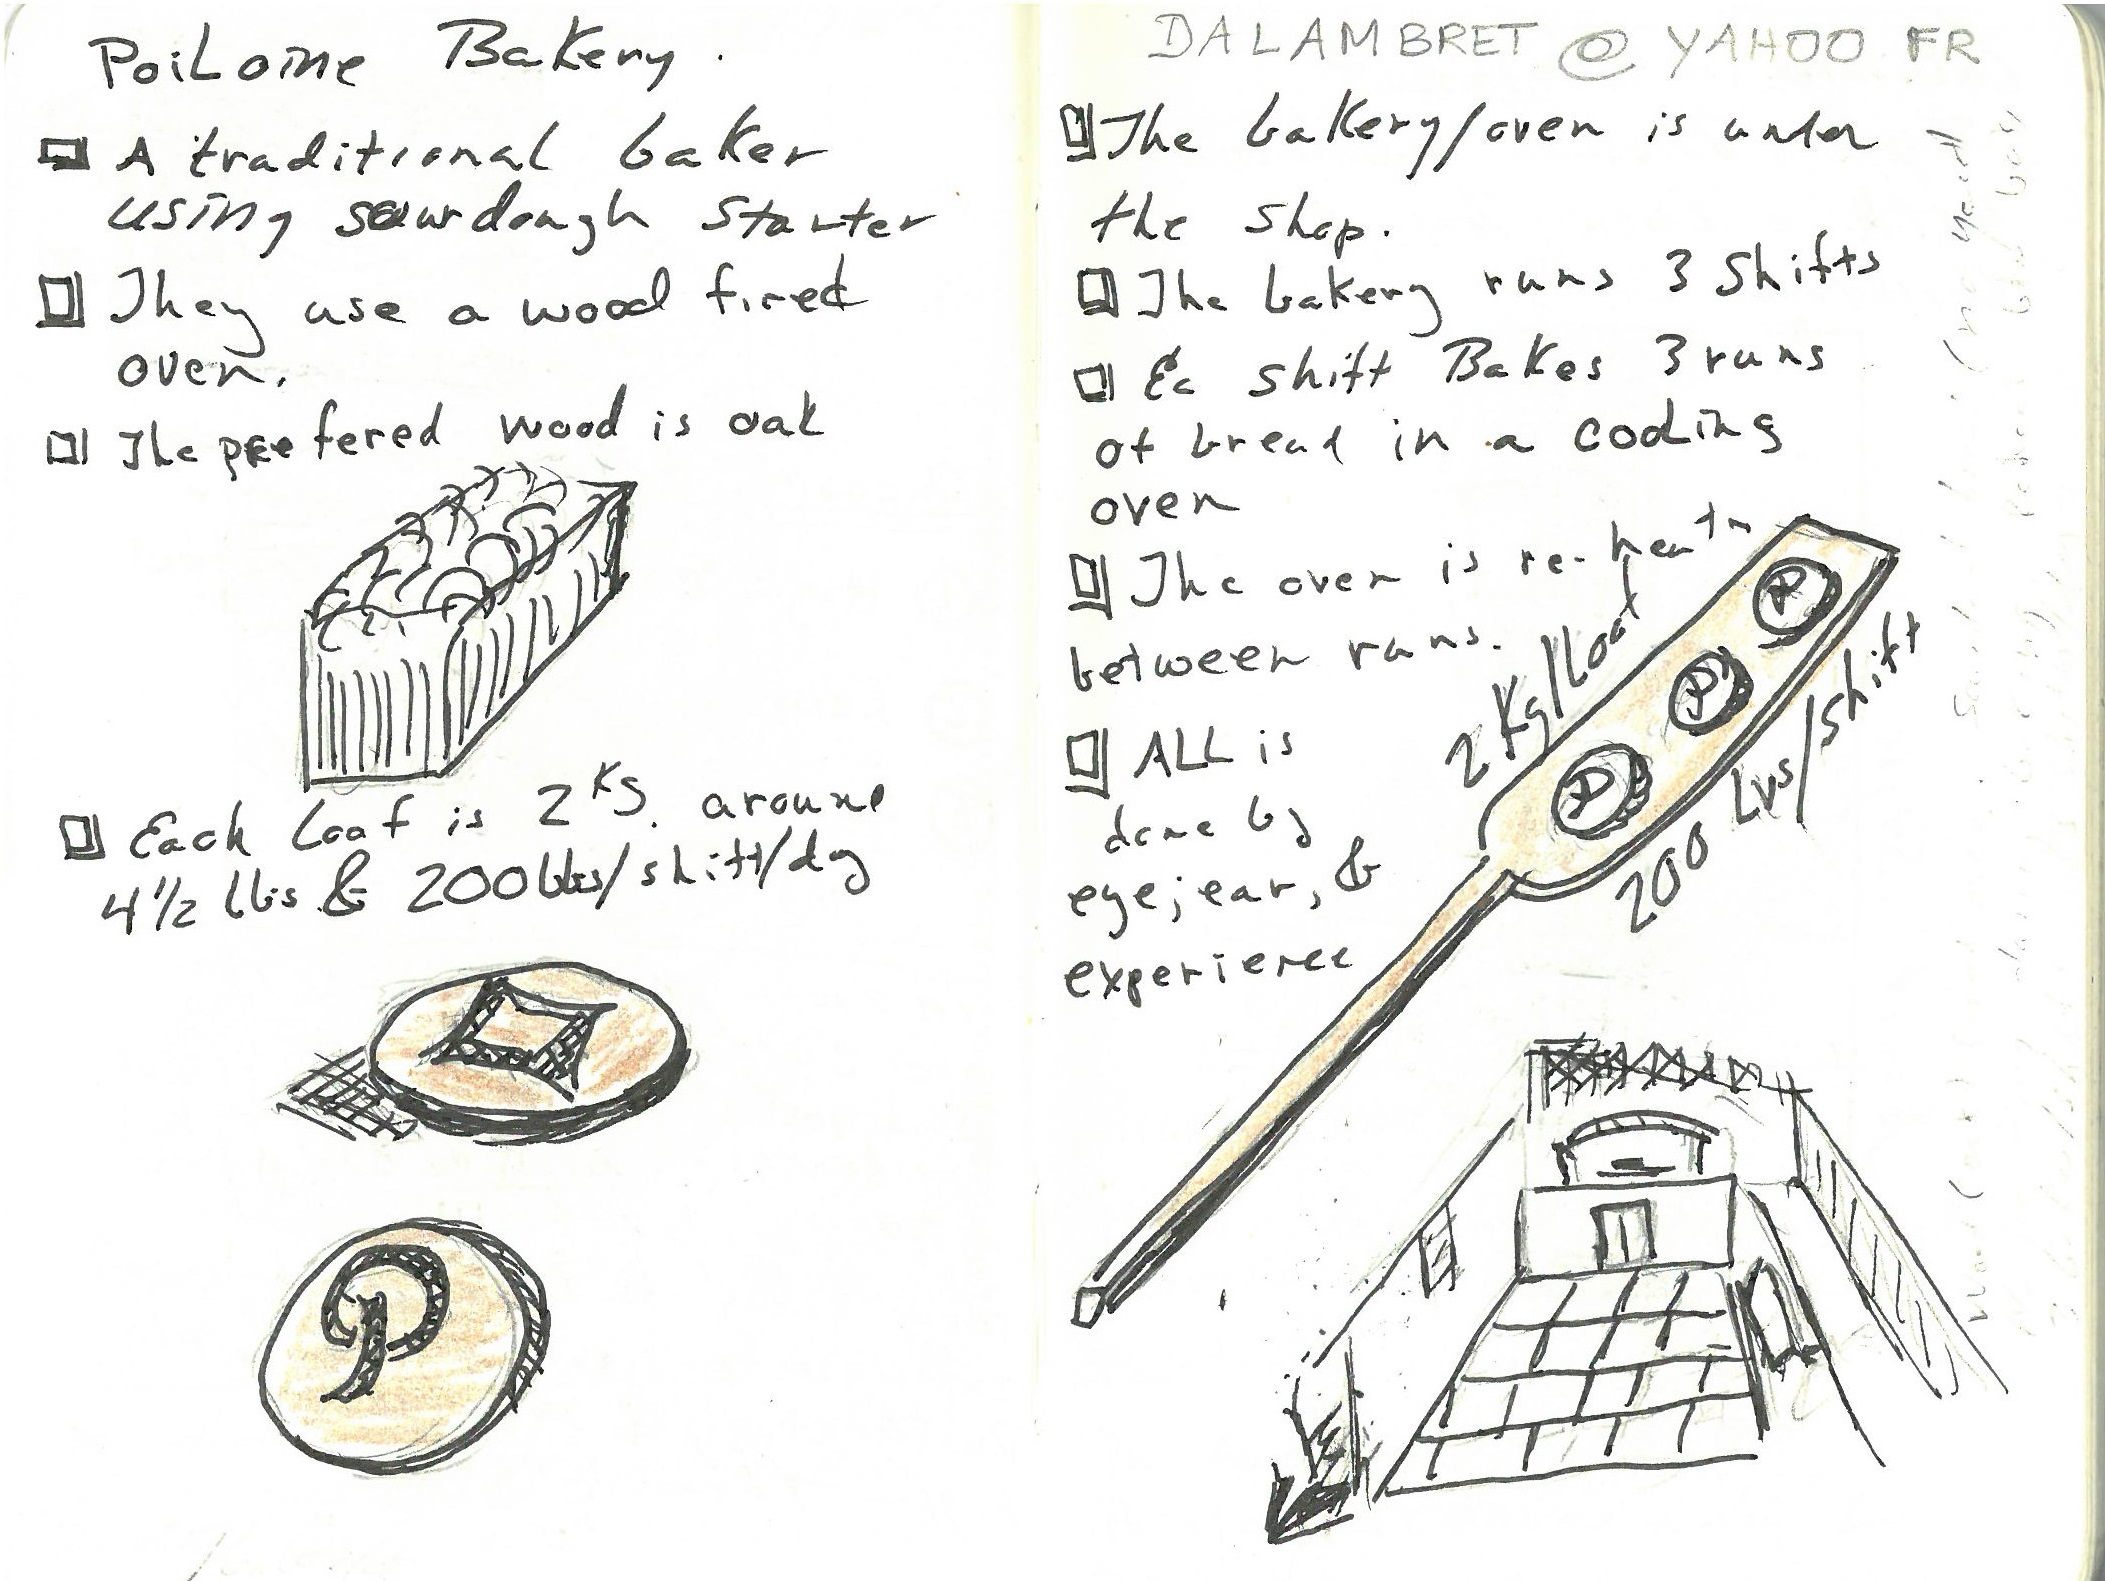 PoiLaine Bakery.
A traditional baker
using sourdough starter
They use a wood fired
oven.
The prefered wood is oak
Each Loaf is 2 KG. around
4 1/2 lbs & 200 lbs/shift/day
P
DALAMBRET @ YAHOO FR
The bakery/oven is under
the shop.
The bakery runs 3 Shifts
Ea shift Bakes 3 runs
of bread in a cooling
oven
The oven is re-heatn
between runs.
ALL is
done by
eye, ear, &
experience
2 Kg/Loaf
P
P
P
200 Lvs/shift